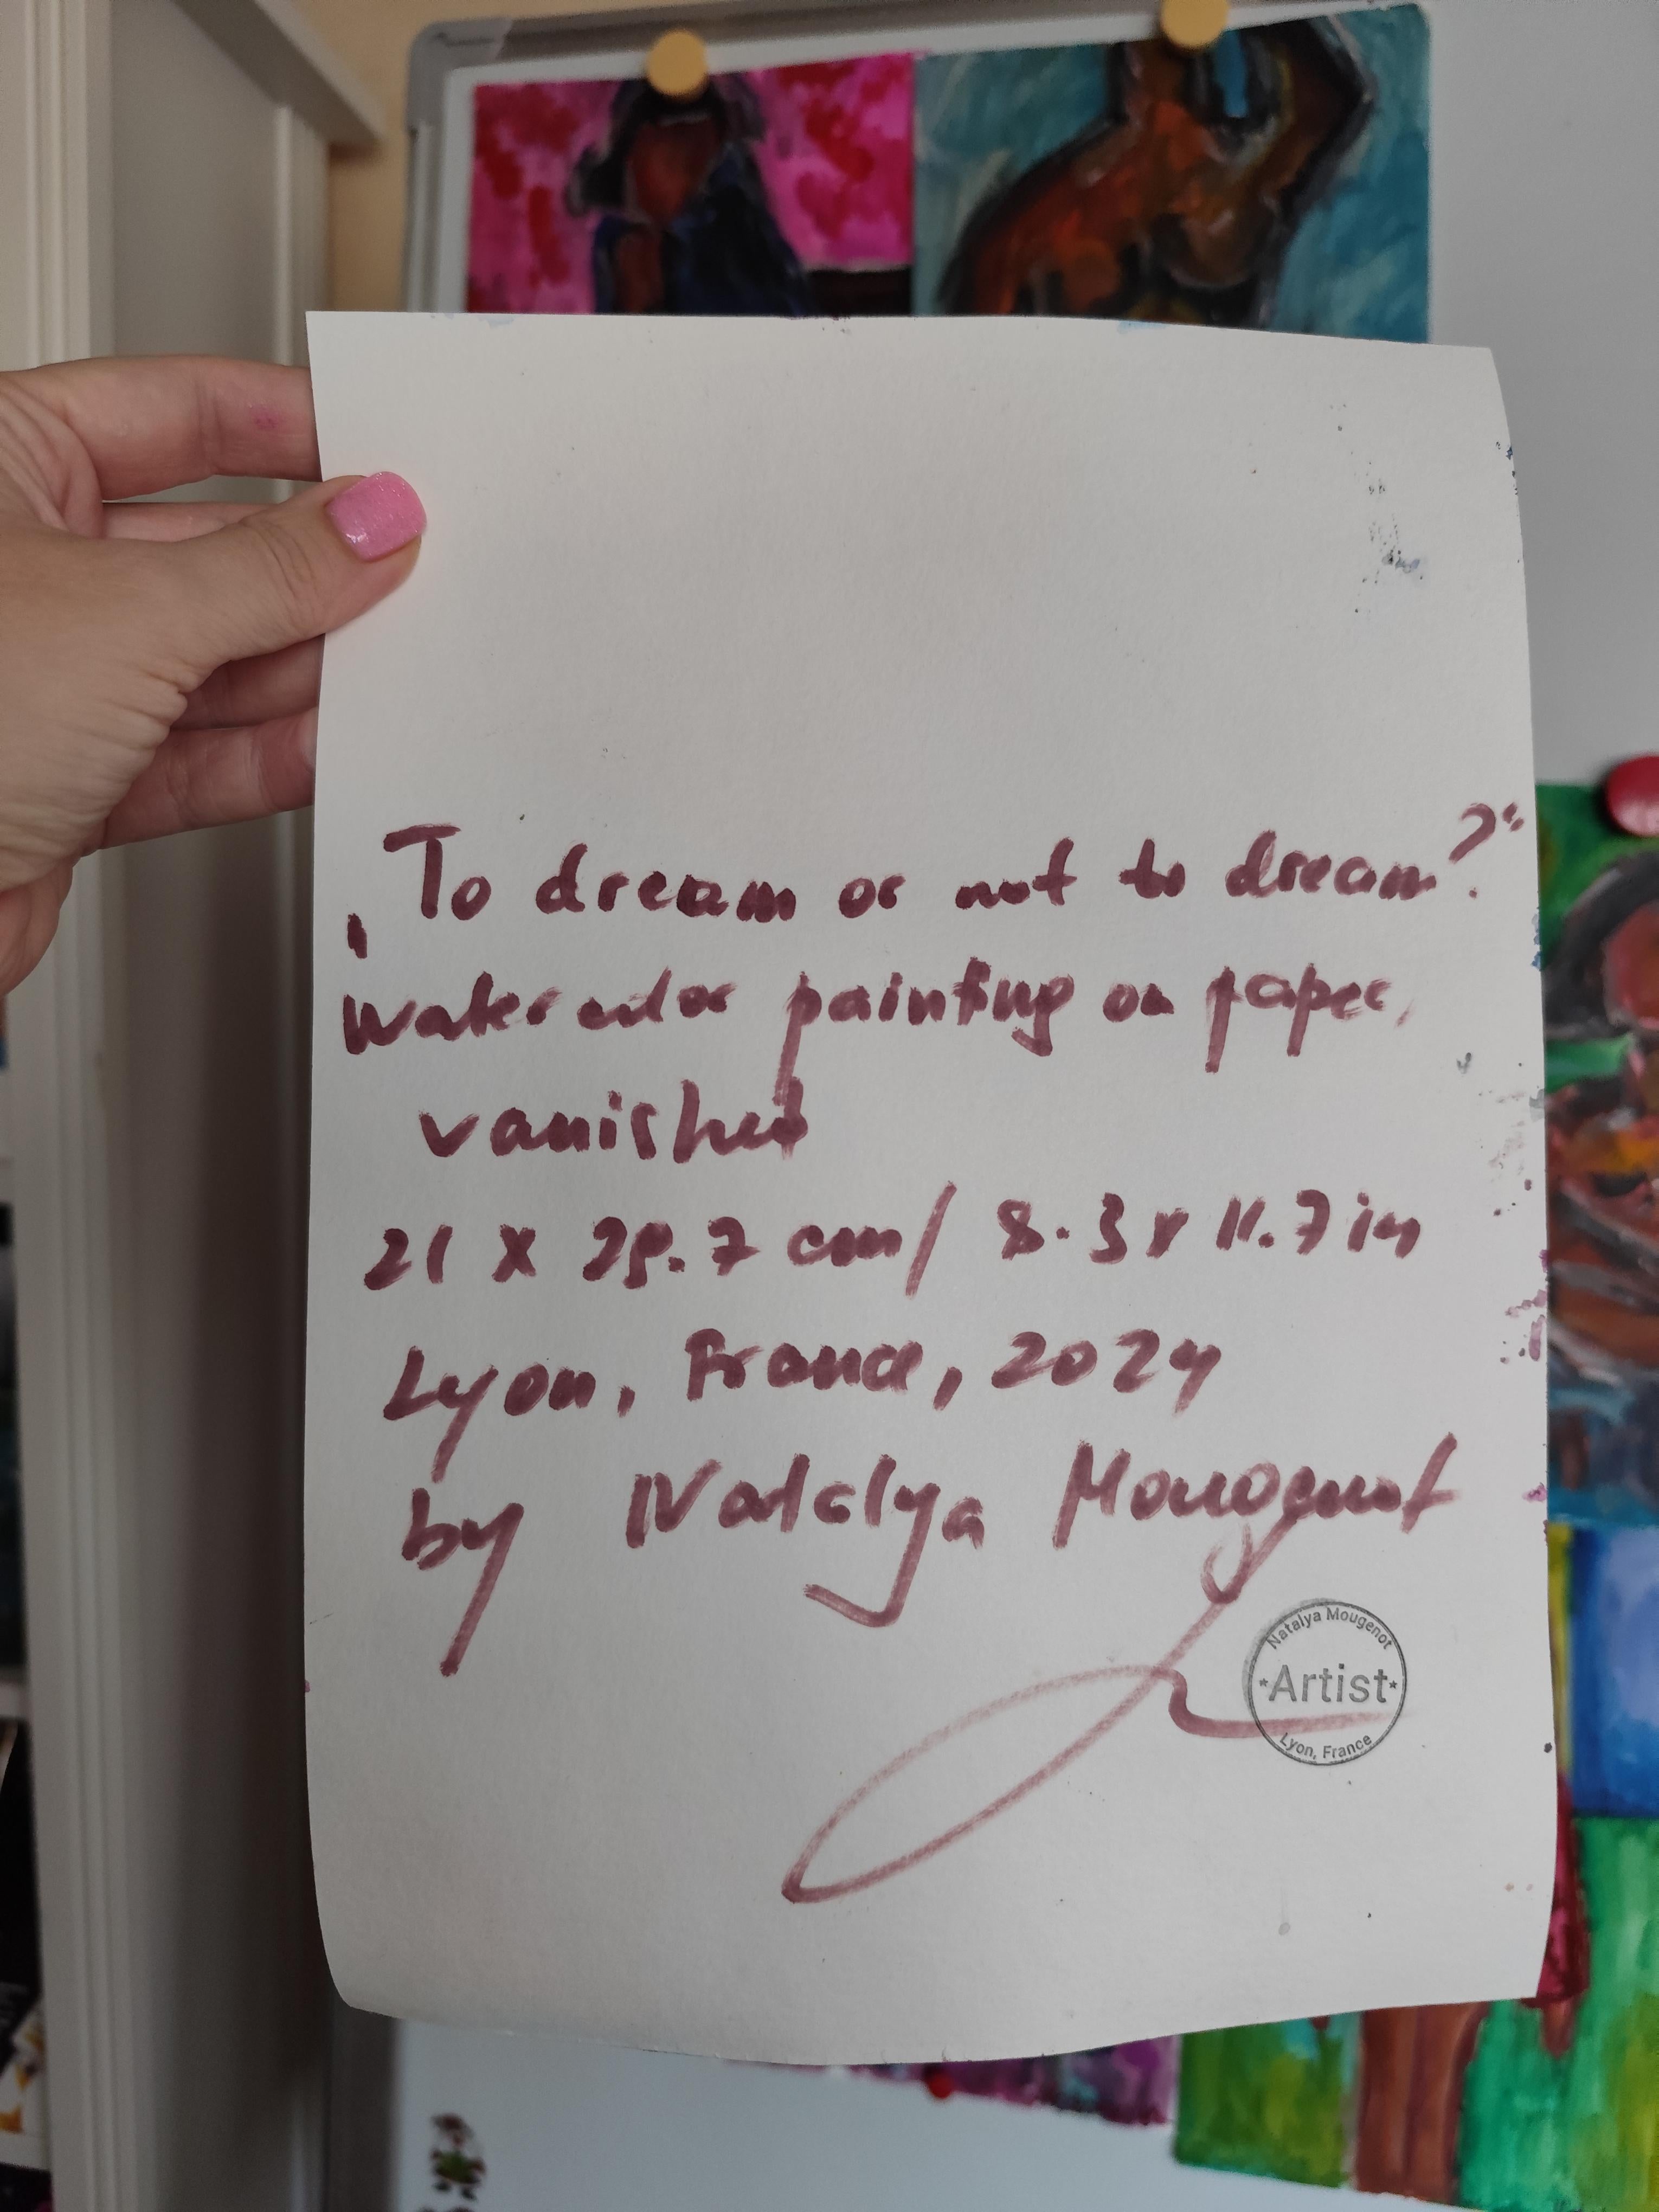 „To dream or not to dream?“
Watercolor painting on paper,
vanished
21 x 29.7 cm / 8.3 x 11.7 in
Lyon, France, 2024
by Natalya Mougenot
Natalya Mougenot
*Artist*
Lyon, France